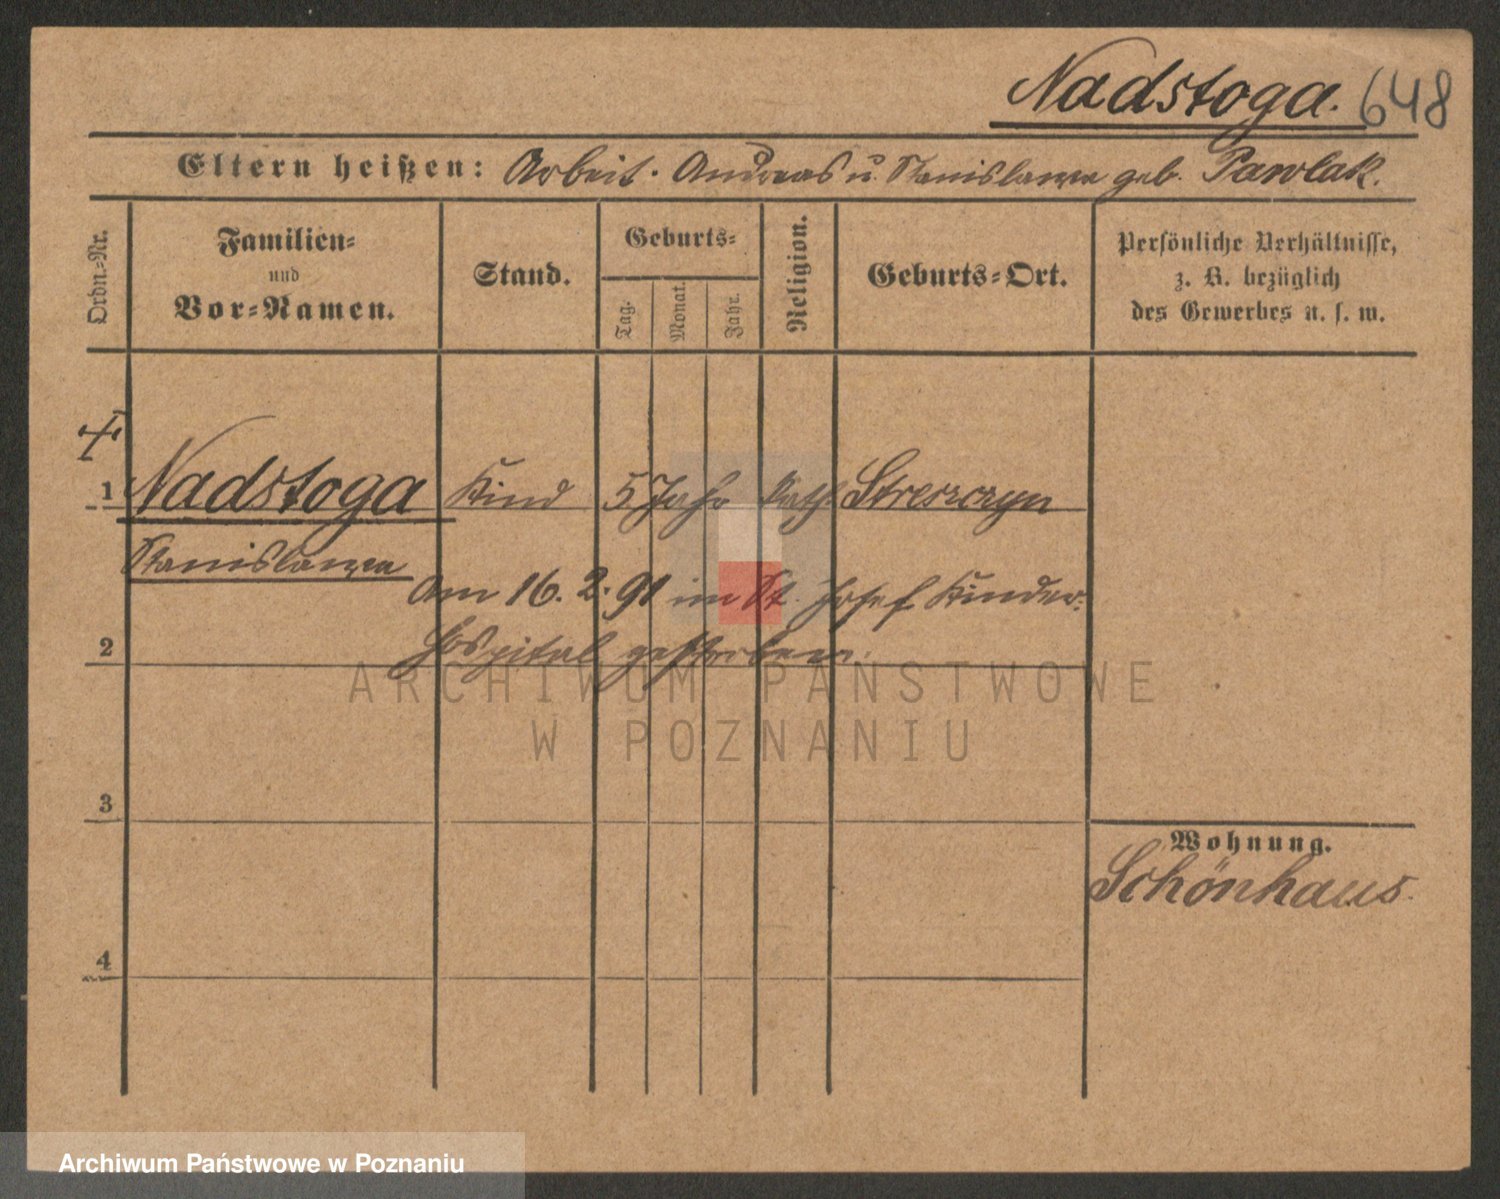 Nadstoga. 648
Eltern heißen: Arbeit. Andreas u. Stanislawa geb. Pawlak.
Ordn.-Nr.
Familien-
und
Vor-Namen.
Stand.
Geburts-
Tag.
Monat.
Jahr.
Religion.
Geburts-Ort.
Persönliche Verhältnisse,
z. B. bezüglich
des Gewerbes u. s. w.
1 Nadstoga Kind 5 Jahr kath. Streszczyn
Stanislawa
Am 16. 2. 91 im St. Josef Kinder-
hospital gestorben.
2
3
4
Wohnung.
Schönhaus.
ARCHIWUM PAŃSTWOWE
W POZNANIU
Archiwum Państwowe w Poznaniu